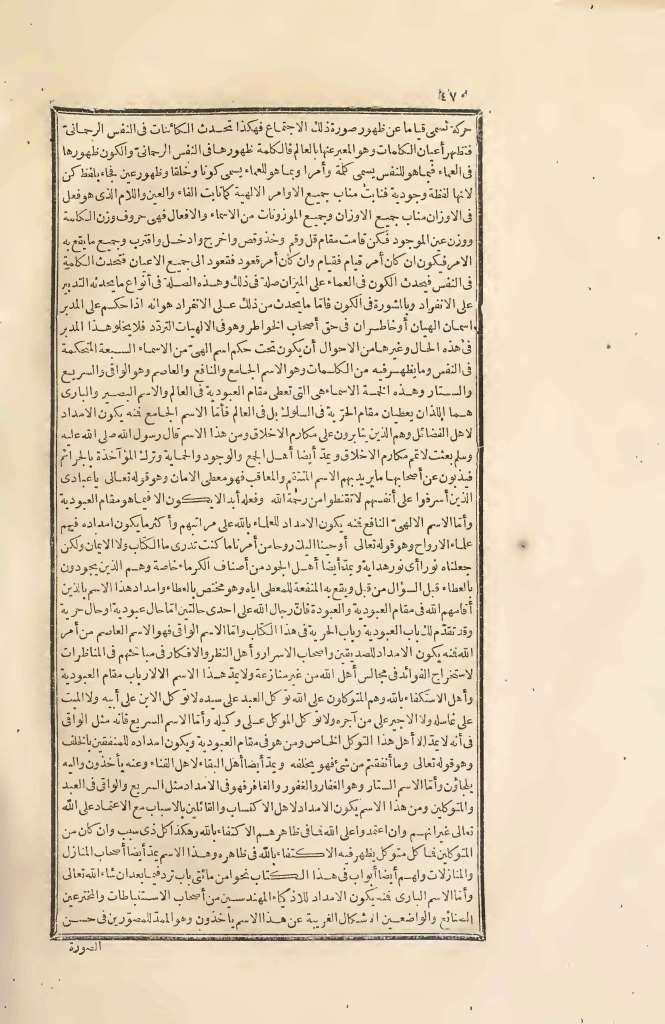 ٤٧٠
حركة تسمى قياما عن ظهور صورة ذلك الاجتماع فهكذا تحدث الكائنات فى النفس الرحمانى
فتظهر أعيان الكلمات وهو المعبر عنها بالعالم فالكلمة ظهورها فى النفس الرحمانى والكون ظهورها
فى العماء فبما هو للنفس يسمى كلمة وأمرا وبما هو للعماء يسمى كونا وخلقا وظهور عين فجاء بلفظ كن
لانها لفظة وجودية فنابت مناب جميع الاوامر الالهية كما نابت الفاء والعين واللام الذى هو فعل
فى الاوزان مناب جميع الاوزان وجميع الموزونات من الاسماء والافعال فهى حروف وزن الكلمة
ووزن عين الموجود فكن قامت مقام قل وقم وخذ وقص واخرج وادخل واقترب وجميع ما يقع به
الامر فيكون ان كان أمر قيام فقيام وان كان أمر قعود فقعود الى جميع الاعيان فتحدث الكلمة
فى النفس فيحدث الكون فى العماء على الميزان صلة فى ذلك وهذه الصلة فى أنواع ما يحدثه التدبير
على الانفراد وبالمشورة فى الكون فاما ما يحدث من ذلك على الانفراد هو انه اذا حكم على المدبر
اسمان الهيان أو خاطران فى حق أصحاب الخواطر وهو فى الالهيات التردد فلا يخلو هذا المدبر
فى هذه الحال وغيرها من الاحوال أن يكون تحت حكم اسم الهى من الاسماء السبعة المتحكمة
فى النفس وما يظهر فيه من الكلمات وهو الاسم الجامع والنافع والعاصم وهو الواقى والسريع
والستار وهذه الخمسة الاسماء هى التى تعطى مقام العبودية فى العالم والاسم البصير والبارى
هما اللذان يعطيان مقام الحرية فى السلوك بل فى العالم فأما الاسم الجامع فمنه يكون الامداد
لاهل الفضائل وهم الذين يثابرون على مكارم الاخلاق ومن هذا الاسم قال رسول الله صلى الله عليه
وسلم بعثت لاتمم مكارم الاخلاق ويمد أيضا أهل الجمع والوجود والحماية وترك المؤاخذة بالجرائم
فيذبون عن أصحابها ما يريد بهم الاسم المنتقم والمعاقب فهو معطى الامان وهو قوله تعالى يا عبادى
الذين أسرفوا على أنفسهم لا تقنطوا من رحمة الله وفعله أبدا لا يكون الا فيما هو مقام العبودية
وأما الاسم الالهى النافع فمنه يكون الامداد للعلماء بالله على مراتبهم وأكثر ما يكون امداده فيهم
علماء الارواح وهو قوله تعالى أوحينا اليك روحا من أمرنا ما كنت تدرى ما الكتاب ولا الايمان ولكن
جعلناه نورا أى نور هداية ويمد أيضا أهل الجود من أصناف الكرماء خاصة وهم الذين يجودون
بالعطاء قبل السؤال من قبل ويقع به المنفعة للمعطى اياه وهو مختص بالعطاء وامداد هذا الاسم بالذين
أقامهم الله فى مقام العبودية والعبودة فان رجال الله على احدى حالتين اما حال عبودية او حال حرية
وقد تقدم لك باب العبودية وباب الحرية فى هذا الكتاب واما الاسم الواقى فهو الاسم العاصم من أمر
الله فمنه يكون الامداد للصديقين واصحاب الاسرار وأهل النظر والافكار فى مباحثهم فى المناظرات
لاستخراج الفوائد فى مجالس أهل الله من غير منازعة ولا يمد هذا الاسم الا لارباب مقام العبودية
وأهل الاستكفاء بالله وهم المتوكلون على الله توكل العبد على سيده لا توكل الابن على أبيه ولا الميت
على غاسله ولا الاجير على من آجره ولا توكل الموكل على وكيله وأما الاسم السريع فانه مثل الواقى
فى أنه لا يمد الا أهل هذا التوكل الخاص ومن هو فى مقام العبودية ويكون امداده للمنفقين بالخلف
وهو قوله تعالى وما أنفقتم من شئ فهو يخلفه ويمد أيضا أهل البقاء لاهل الفناء وعنه يأخذون واليه
يلجاؤن وأما الاسم الستار وهو الغفار والغفور والغافر فهو فى الامداد مثل السريع والواقى فى العبد
والمتوكلين ومن هذا الاسم يكون الامداد لاهل الاكتساب والقائلين بالاسباب مع الاعتماد على الله
تعالى غير انهم وان اعتمدوا على الله فما فى ظاهرهم الاكتفاء بالله وهكذا كل ذى سبب وان كان من
المتوكلين فما كل متوكل يظهر فيه الاكتفاء بالله فى ظاهره وهذا الاسم يمد أيضا أصحاب المنازل
والمنازلات ولهم أيضا أبواب فى هذا الكتاب نحو من مائتى باب ترد فيما بعد ان شاء الله تعالى
وأما الاسم البارى فمنه يكون الامداد للاذكياء المهندسين من أصحاب الاستنباطات والمخترعين
الصنائع والواضعين الاشكال الغريبة عن هذا الاسم يأخذون وهو الممد للمصورين فى حسن
الصورة